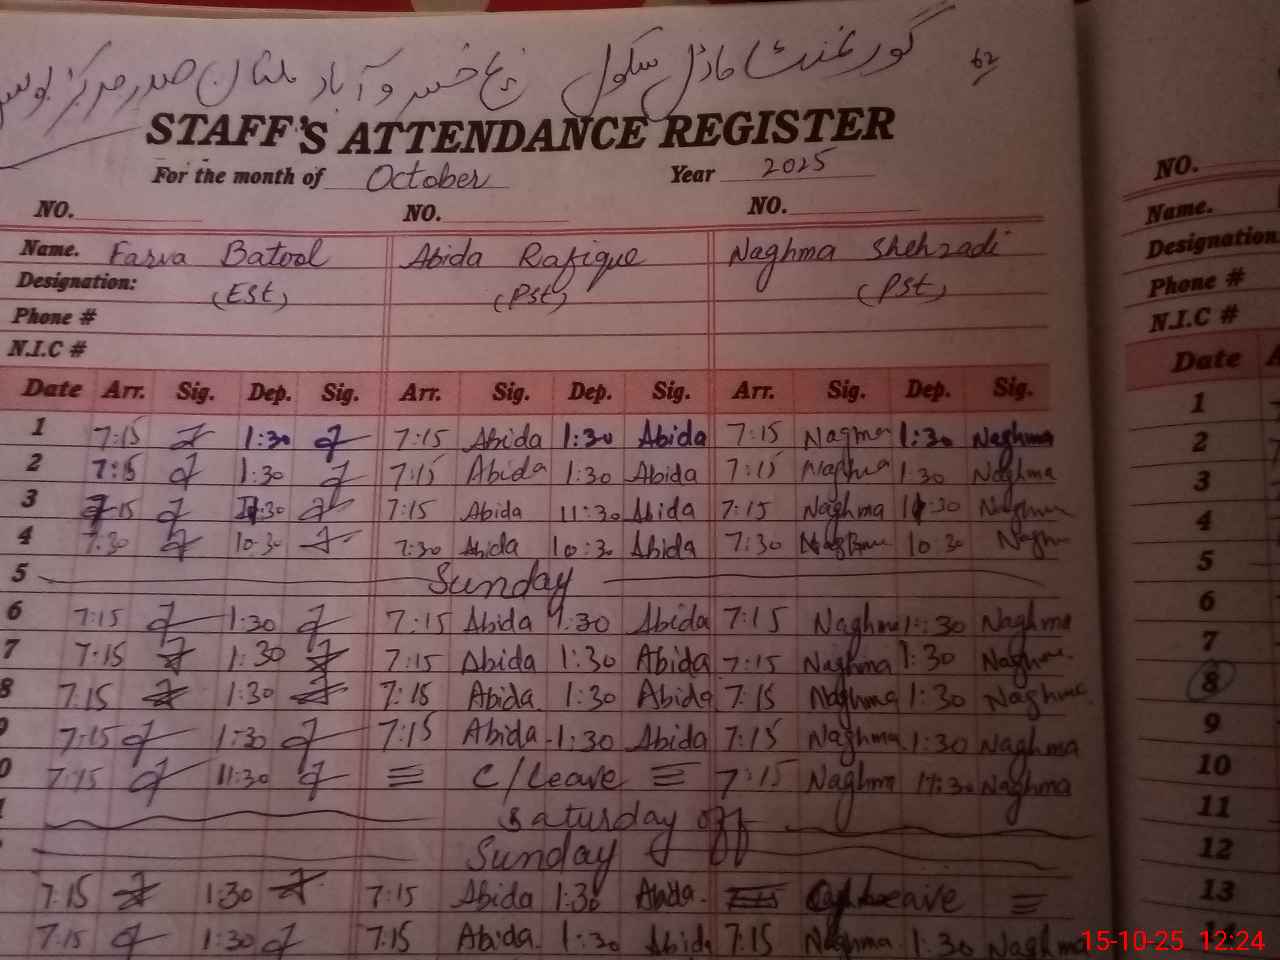 گورنمنٹ ماڈل سکول خسرو آباد ملتان صدر مرکز
62
STAFF'S ATTENDANCE REGISTER
For the month of October Year 2025
NO. NO. NO. NO.
Name. Farva Batool Abida Rafique Naghma Shehzadi Name.
Designation: (Est) (Pst) (Pst) Designation
Phone # Phone #
N.I.C # N.I.C #
Date Arr. Sig. Dep. Sig. Arr. Sig. Dep. Sig. Arr. Sig. Dep. Sig. Date
1 7:15 1:30 7:15 Abida 1:30 Abida 7:15 Nagma 1:30 Naghma 1
2 7:15 1:30 7:15 Abida 1:30 Abida 7:15 Naghma 1:30 Naghma 2
3 7:15 11:30 7:15 Abida 11:30 Abida 7:15 Naghma 11:30 Naghma 3
4 7:30 10:30 7:30 Abida 10:30 Abida 7:30 10:30 Naghm 4
5 Sunday 5
6 7:15 1:30 7:15 Abida 1:30 Abida 7:15 Naghma 1:30 Naghma 6
7 7:15 1:30 7:15 Abida 1:30 Abida 7:15 Naghma 1:30 Naghma 7
8 7:15 1:30 7:15 Abida 1:30 Abida 7:15 Naghma 1:30 Naghma 8
7:15 1:30 7:15 Abida 1:30 Abida 7:15 Naghma 1:30 Naghma 9
0 7:15 11:30 C/Leave 7:15 Naghma 11:30 Naghma 10
Saturday off 11
Sunday 12
7:15 1:30 7:15 Abida 1:30 Abida. Leave 13
7:15 1:30 7:15 Abida 1:30 Abida 7:15 Naghma 1:30 Naghma
15-10-25 12:24